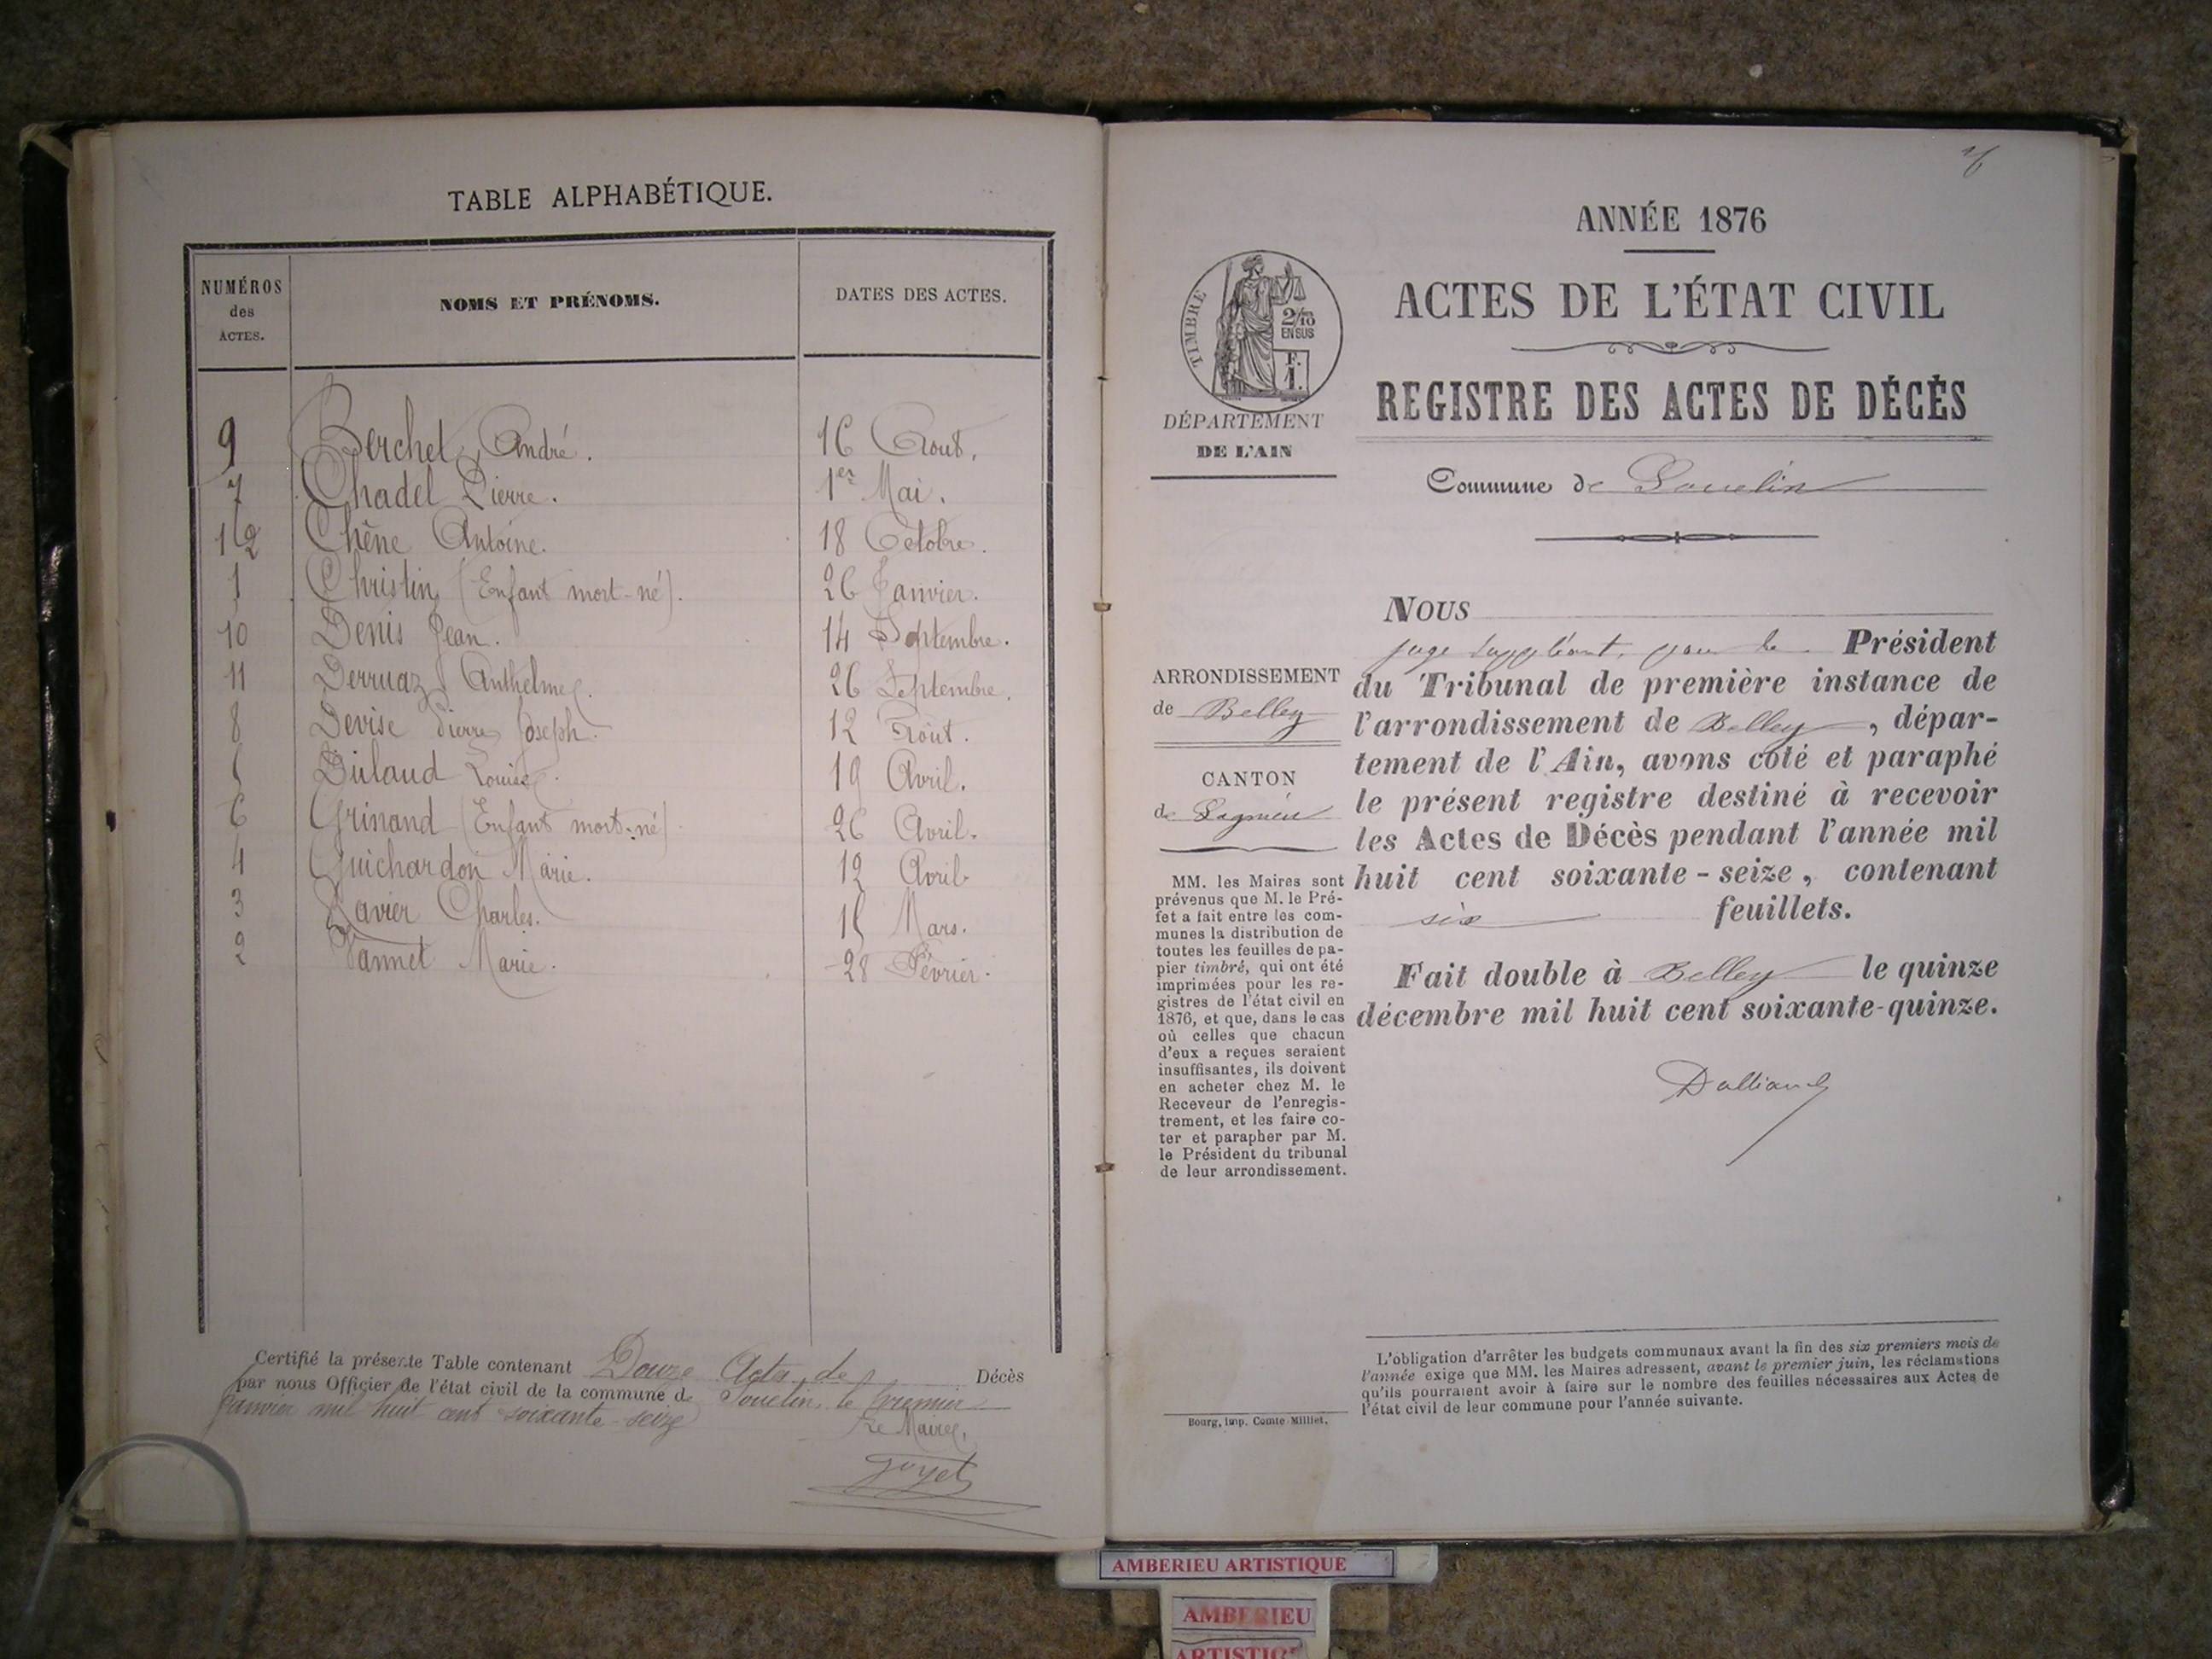 TABLE ALPHABÉTIQUE.
NUMÉROS des ACTES. NOMS ET PRÉNOMS. DATES DES ACTES.
9 Berchet André. 16 Aout.
7 Chadel Pierre. 1er Mai.
12 Chêne Antoine. 18 Octobre.
1 Christin (Enfant mort-né). 26 Janvier.
10 Denis Jean. 14 Septembre.
11 Derruaz Anthelme. 26 Septembre.
8 Devise Pierre Joseph. 12 Août.
5 Dulaud Louise. 19 Avril.
6 Grinand (Enfant mort-né) 26 Avril.
4 Guichardon Marie. 12 Avril
3 Ravier Charles. 15 Mars.
2 Vannet Marie. 28 Février.
Certifié la présente Table contenant Douze Actes de Décès
par nous Officier de l'état civil de la commune de Souclin, le premier
Janvier mil huit cent soixante-seize
Le Maire,
Goyet
ANNÉE 1876
ACTES DE L'ÉTAT CIVIL
REGISTRE DES ACTES DE DÉCÈS
TIMBRE
2/10
EN SUS
F.
1.
DÉPARTEMENT
DE L'AIN
Commune de Souclin
NOUS
juge suppléant, pour le Président
du Tribunal de première instance de
l'arrondissement de Belley, dépar-
tement de l'Ain, avons coté et paraphé
le présent registre destiné à recevoir
les Actes de Décès pendant l'année mil
huit cent soixante-seize, contenant
six feuillets.
Fait double à Belley le quinze
décembre mil huit cent soixante-quinze.
ARRONDISSEMENT
de Belley
CANTON
de Lagnieu
MM. les Maires sont
prévenus que M. le Pré-
fet a fait entre les com-
munes la distribution de
toutes les feuilles de pa-
pier timbré, qui ont été
imprimées pour les re-
gistres de l'état civil en
1876, et que, dans le cas
où celles que chacun
d'eux a reçues seraient
insuffisantes, ils doivent
en acheter chez M. le
Receveur de l'enregis-
trement, et les faire co-
ter et parapher par M.
le Président du tribunal
de leur arrondissement.
L'obligation d'arrêter les budgets communaux avant la fin des six premiers mois de
l'année exige que MM. les Maires adressent, avant le premier juin, les réclamations
qu'ils pourraient avoir à faire sur le nombre des feuilles nécessaires aux Actes de
l'état civil de leur commune pour l'année suivante.
Bourg, imp. Comte-Milliet.
AMBERIEU ARTISTIQUE
AMBERIEU
ARTISTIQUE